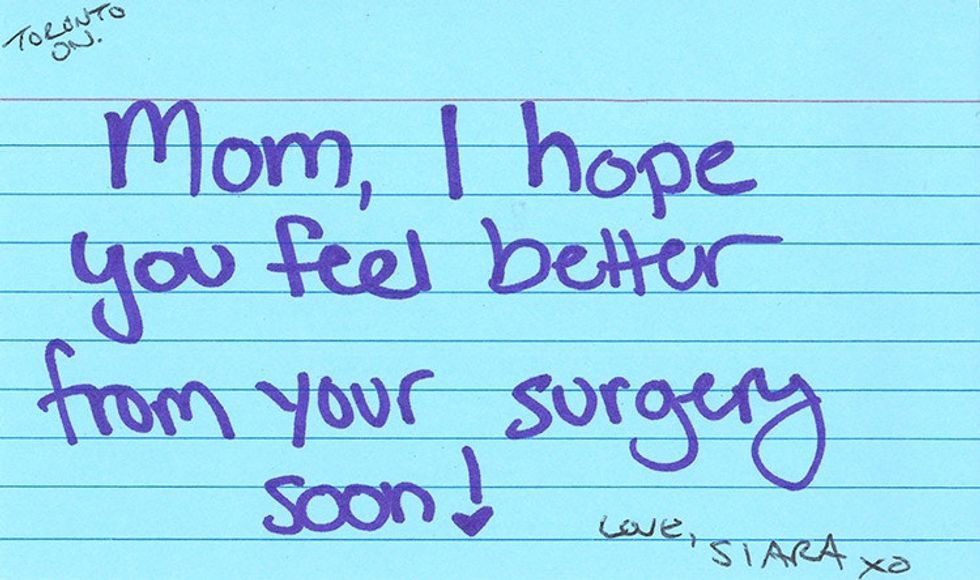 TORONTO
ON.
Mom, I hope
you feel better
from your surgery
soon!
LOVE,
SIARA XO